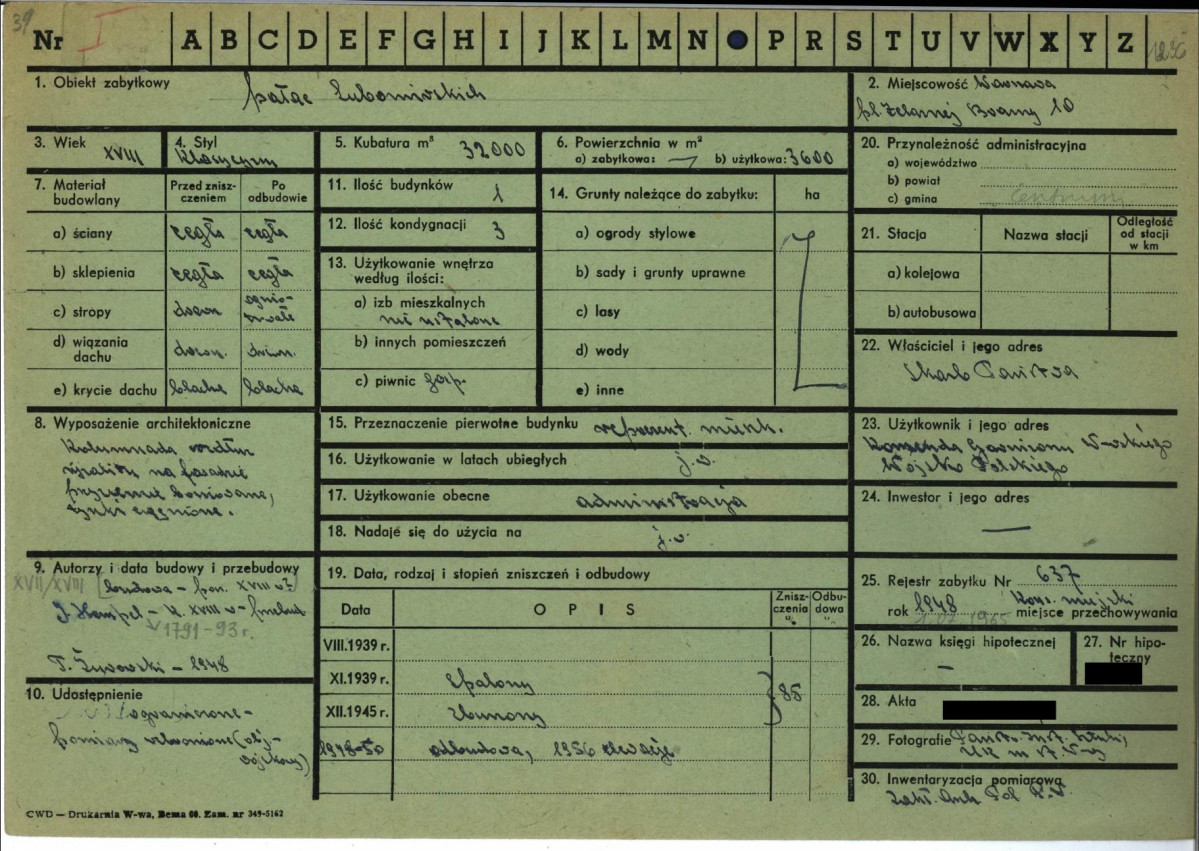 39
Nr I A B C D E F G H I J K L M N P R S T U V W X Y Z
1. Obiekt zabytkowy
pałac Lubomirskich
2. Miejscowość Warszawa
pl. Żelaznej Bramy 10
3. Wiek XVIII
4. Styl
klasycyzm
5. Kubatura m³ 32000
6. Powierzchnia w m²
a) zabytkowa: — b) użytkowa: 3600
20. Przynależność administracyjna
a) województwo
b) powiat
c) gmina Centrum
7. Materiał budowlany
Przed zniszczeniem
Po odbudowie
a) ściany cegła cegła
b) sklepienia cegła cegła
c) stropy drewn ognio-
trwałe
d) wiązania dachu drewn. drewn.
e) krycie dachu blacha blacha
11. Ilość budynków 1
12. Ilość kondygnacji 3
13. Użytkowanie wnętrza
według ilości:
a) izb mieszkalnych
nie ustalone
b) innych pomieszczeń
c) piwnic
14. Grunty należące do zabytku: ha
a) ogrody stylowe
b) sady i grunty uprawne
c) lasy
d) wody
e) inne
21. Stacja Nazwa stacji Odległość
od stacji
w km
a) kolejowa
b) autobusowa
22. Właściciel i jego adres
Skarb Państwa
8. Wyposażenie architektoniczne
Kolumnada wzdłuż
ryzalitu na fasadzie
przyziemie boniowane,
tynki ciągnione.
15. Przeznaczenie pierwotne budynku reprezent. mieszk.
16. Użytkowanie w latach ubiegłych j.w.
17. Użytkowanie obecne administracja
18. Nadaje się do użycia na j.w.
23. Użytkownik i jego adres
Komenda Garnizonu W-skiego
Wojska Polskiego
24. Inwestor i jego adres
—
9. Autorzy i data budowy i przebudowy
XVII/XVIII budowa – poł. XVIII w?
J. Hempel – k. XVIII w – przebud
1791–93 r.
T. Żurowski – 1948
10. Udostępnienie
ograniczone –
pomiary wzbronione (ob.
wojskowy)
19. Data, rodzaj i stopień zniszczeń i odbudowy
Data OPIS Znisz-
czenia % Odbu-
dowa %
VIII.1939 r.
XI.1939 r. Spalony
XII.1945 r. Zburzony 85
1948–50 odbudowa, 1956 elewacje
25. Rejestr zabytku Nr 637
rok 1948 kons. miejski
1.07.1965 miejsce przechowywania
26. Nazwa księgi hipotecznej
—
27. Nr hipo-
teczny
28. Akta
29. Fotografie Państw. Inst. Sztuki,
30. Inwentaryzacja pomiarowa
Zakł. Arch. Pol. P.W.
CWD — Drukarnia W-wa, Bema 60. Zam. nr 349-5162